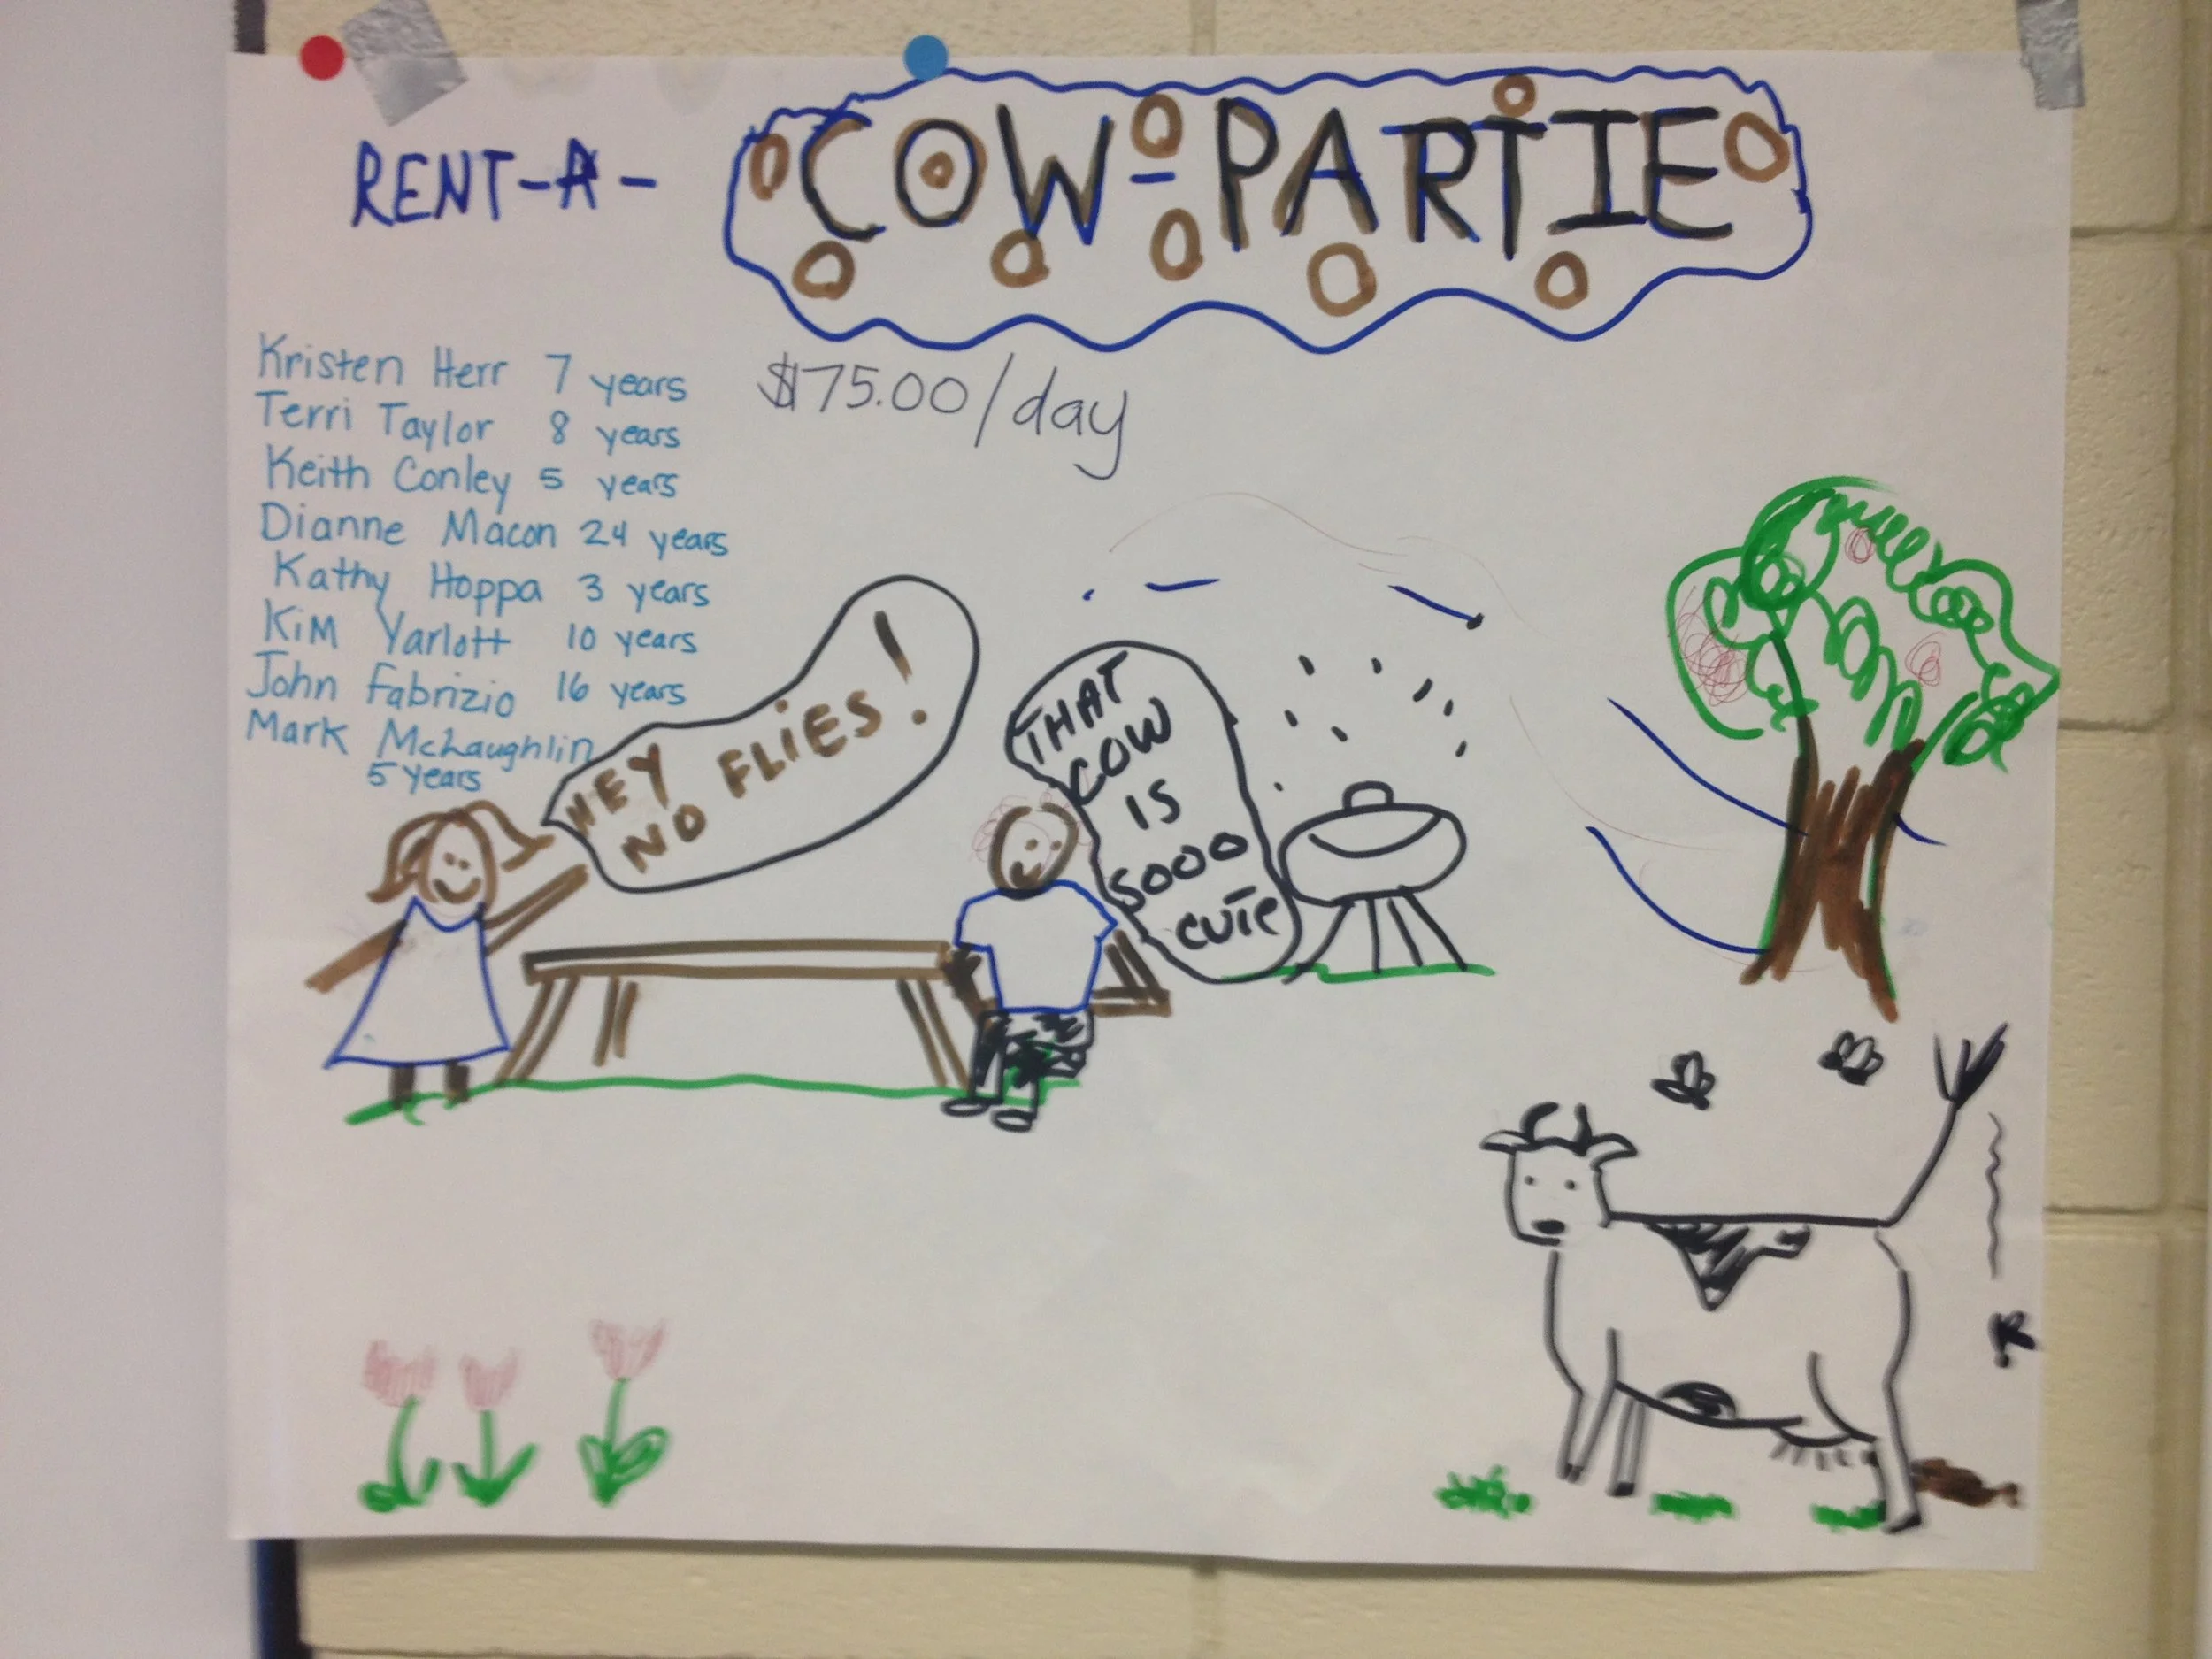 RENT-A-
COW-PARTIE
$75.00/day
Kristen Herr 7 years
Terri Taylor 8 years
Keith Conley 5 years
Dianne Macon 24 years
Kathy Hoppa 3 years
KiM Yarlott 10 years
John Fabrizio 16 years
Mark McLaughlin
5 years
HEY
NO FLiES!
THAT
COW
IS
SOOO
CUTE